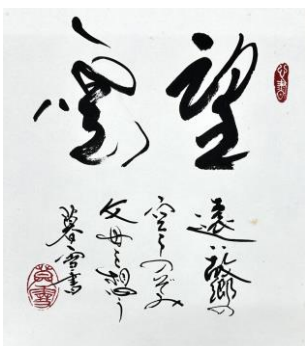 望雲
遠い故郷の
空をのぞみ
父母を想う
暮雪書